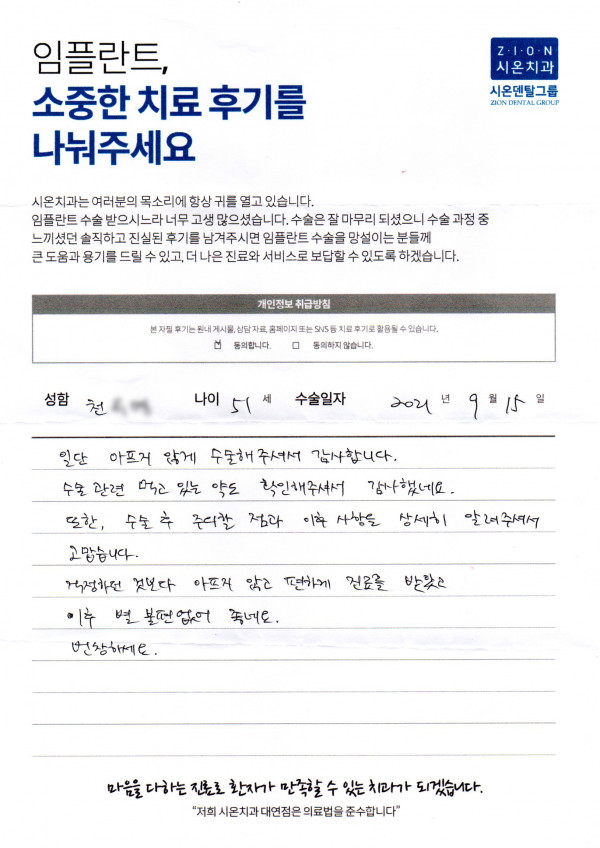 임플란트,
소중한 치료 후기를
나눠주세요
Z·I·O·N
시온치과
시온덴탈그룹
ZION DENTAL GROUP
시온치과는 여러분의 목소리에 항상 귀를 열고 있습니다.
임플란트 수술 받으시느라 너무 고생 많으셨습니다. 수술은 잘 마무리 되셨으니 수술 과정 중
느끼셨던 솔직하고 진실된 후기를 남겨주시면 임플란트 수술을 망설이는 분들께
큰 도움과 용기를 드릴 수 있고, 더 나은 진료와 서비스로 보답할 수 있도록 하겠습니다.
개인정보 취급방침
본 자필 후기는 원내 게시물, 상담 자료, 홈페이지 또는 SNS 등 치료 후기로 활용될 수 있습니다.
동의합니다. 동의하지 않습니다.
성함 천 나이 51 세 수술일자 2021 년 9 월 15 일
일단 아프지 않게 수술해주셔서 감사합니다.
수술 관련 먹고 있는 약도 확인해주셔서 감사했네요.
또한, 수술 후 주의할 점과 이후 사항을 상세히 알려주셔서
고맙습니다.
걱정하던 것보다 아프지 않고 편하게 진료를 받았고
이후 별 불편없어 좋네요.
번창하세요.
마음을 다하는 진료로 환자가 만족할 수 있는 치과가 되겠습니다.
"저희 시온치과 대연점은 의료법을 준수합니다"